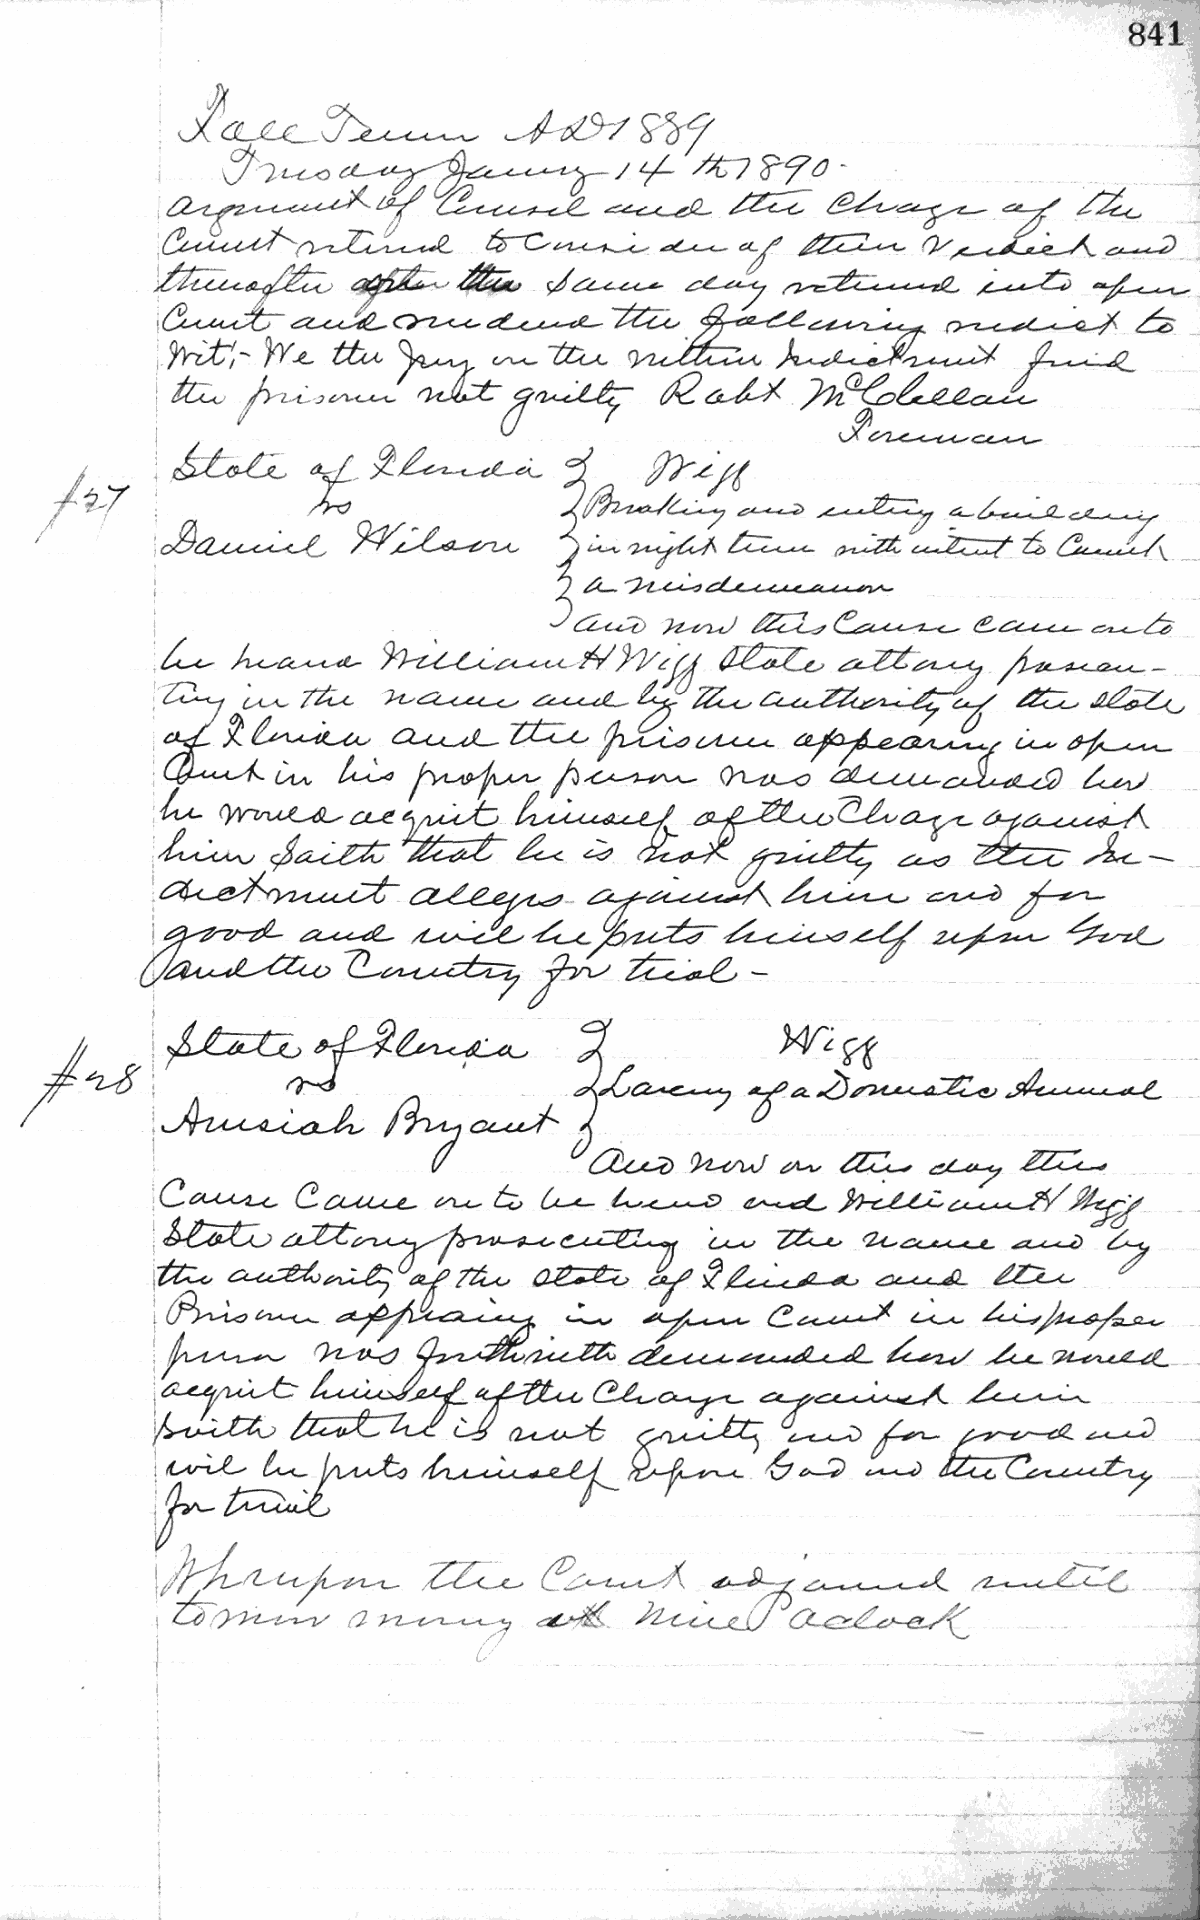 841
Fall Term AD 1889
Tuesday January 14th 1890.
argument of Counsel and the Charge of the
Court retired to Consider of their Verdict and
thereafter after the same day returned into open
Court and rendered the following verdict to
Wit;- We the Jury on the within Indictment find
the prisoner not guilty Robt McClellan
Foreman
State of Florida } Wigg
#27
vs } Breaking and entering a building
Daniel Wilson } in night time with intent to Commit
} a misdemeanor
} and now this Cause came on to
be heard William H Wigg State attorny prosecu-
ting in the name and by the authority of the State
of Florida and the prisoner appearing in open
Court in his proper person was demanded how
he would acquit himself of the Charge against
him Saith that he is not guilty as the In-
dictment alleges against him and for
good and will he puts himself upon God
and the Country for trial -
State of Florida } Wigg
#28
vs } Larceny of a Domestic Animal
Amsiah Bryant }
And now on this day this
Cause Came on to be heard and William H Wigg
State attorny prosecuting in the name and by
the authority of the State of Florida and the
Prisoner appearing in open Court in his proper
person was forthwith demanded how he would
acquit himself of the Charge against him
saith that he is not guilty and for good and
will he puts himself upon God and the Country
for trial
Whereupon the Court adjourned until
tomorrow morning at Nine Oclock